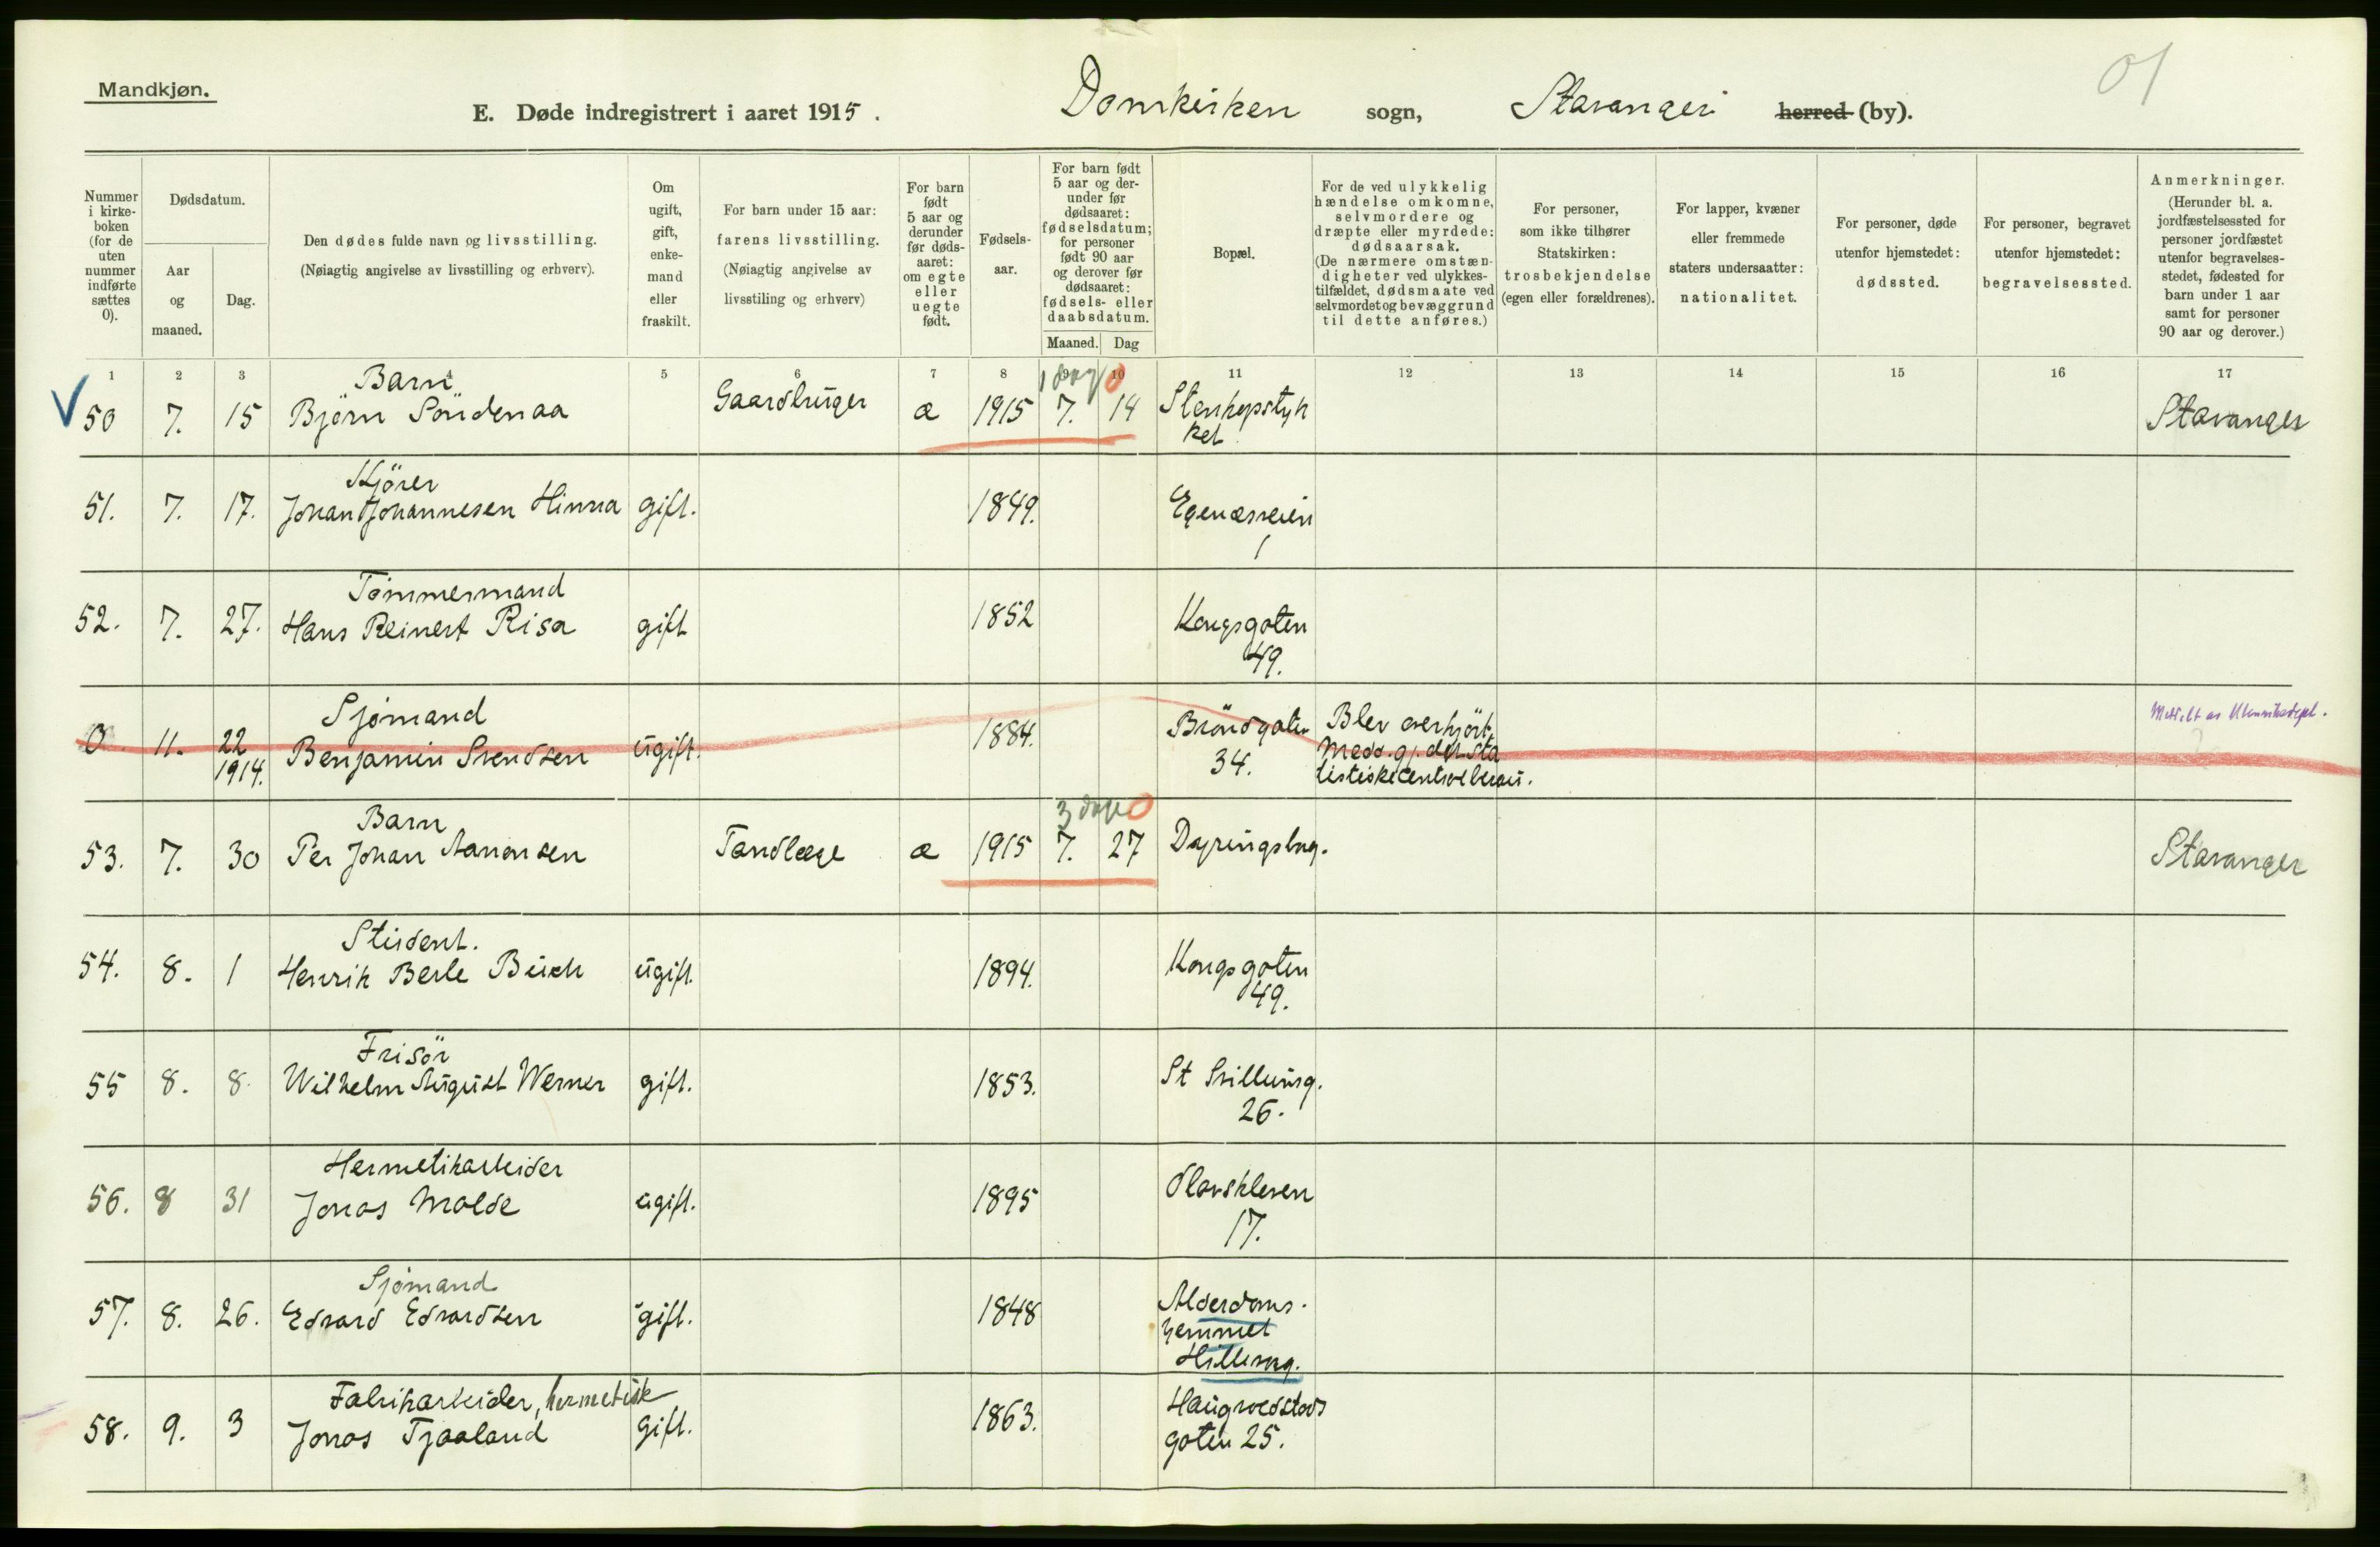 Mandkjøn.
E. Døde indregistrert i aaret 1915. Domkirken sogn, Stavanger herred (by).
01
Nummer i kirkeboken (for de uten nummer indførte sættes 0).
Dødsdatum.
Aar og maaned.
Dag.
Den dødes fulde navn og livsstilling.
(Nøiagtig angivelse av livsstilling og erhverv).
Om ugift, gift, enkemand eller fraskilt.
For barn under 15 aar: farens livsstilling.
(Nøiagtig angivelse av livsstiling og erhverv)
For barn født 5 aar og derunder før dødsaaret: om egte eller uegte født.
Fødselsaar.
For barn født 5 aar og derunder før dødsaaret: fødselsdatum; for personer født 90 aar og derover før dødsaaret: fødsels- eller daabsdatum.
Maaned. Dag
Bopæl.
For de ved ulykkelig hændelse omkomne, selvmordere og dræpte eller myrdede: dødsaarsak.
(De nærmere omstændigheter ved ulykkestilfældet, dødsmaate ved selvmordet og bevæggrund til dette anføres.)
For personer, som ikke tilhører Statskirken: trosbekjendelse (egen eller forældrenes).
For lapper, kvæner eller fremmede staters undersaatter: nationalitet.
For personer, døde utenfor hjemstedet: dødssted.
For personer, begravet utenfor hjemstedet: begravelsessted.
Anmerkninger.
(Herunder bl. a. jordfæstelsessted for personer jordfæstet utenfor begravelsesstedet, fødested for barn under 1 aar samt for personer 90 aar og derover.)
1 2 3 4 5 6 7 8 9 10 11 12 13 14 15 16 17
Barn 1 dag 0
50 7. 15 Bjørn Söndenaa Gaardbruger æ 1915 7. 14 Stenkopstyk Stavanger
ket
Kjörer
51. 7. 17. Johan Johannesen Hinna gift. 1849. Egenæsveien
1
Tömmermand
52. 7. 27. Hans Reinert Risa gift 1852 Kongsgaten
49.
Sjömand
0. 11. 22 1914. Benjamin Svendsen ugift. 1884. Bröndgaten 34. Blev overkjört.
Medd. gj. det Sta
tistiske centralbureau.
Barn 3 dage 0
53. 7. 30 Per Johan Aanensen Tandlæge æ 1915 7. 27 Stavanger
Student.
54. 8. 1 Henrik Berle Buch ugift. 1894. Kongsgaten
49.
Frisör
55 8. 8. Wilhelm August Werner gift. 1853. St Svithunsg.
26.
Hermetikarbeider
56. 8 31 Jonas Molde ugift. 1895 Olavskleven
17.
Sjömand
57. 8. 26. Edvard Edvardsen gift. 1848 Alderdoms-
hjemmet
Hillevåg.
Fabrikarbeider, hermetikk
58. 9. 3 Jonas Tjaaland gift. 1863. Haugvaldstads
gaten 25.